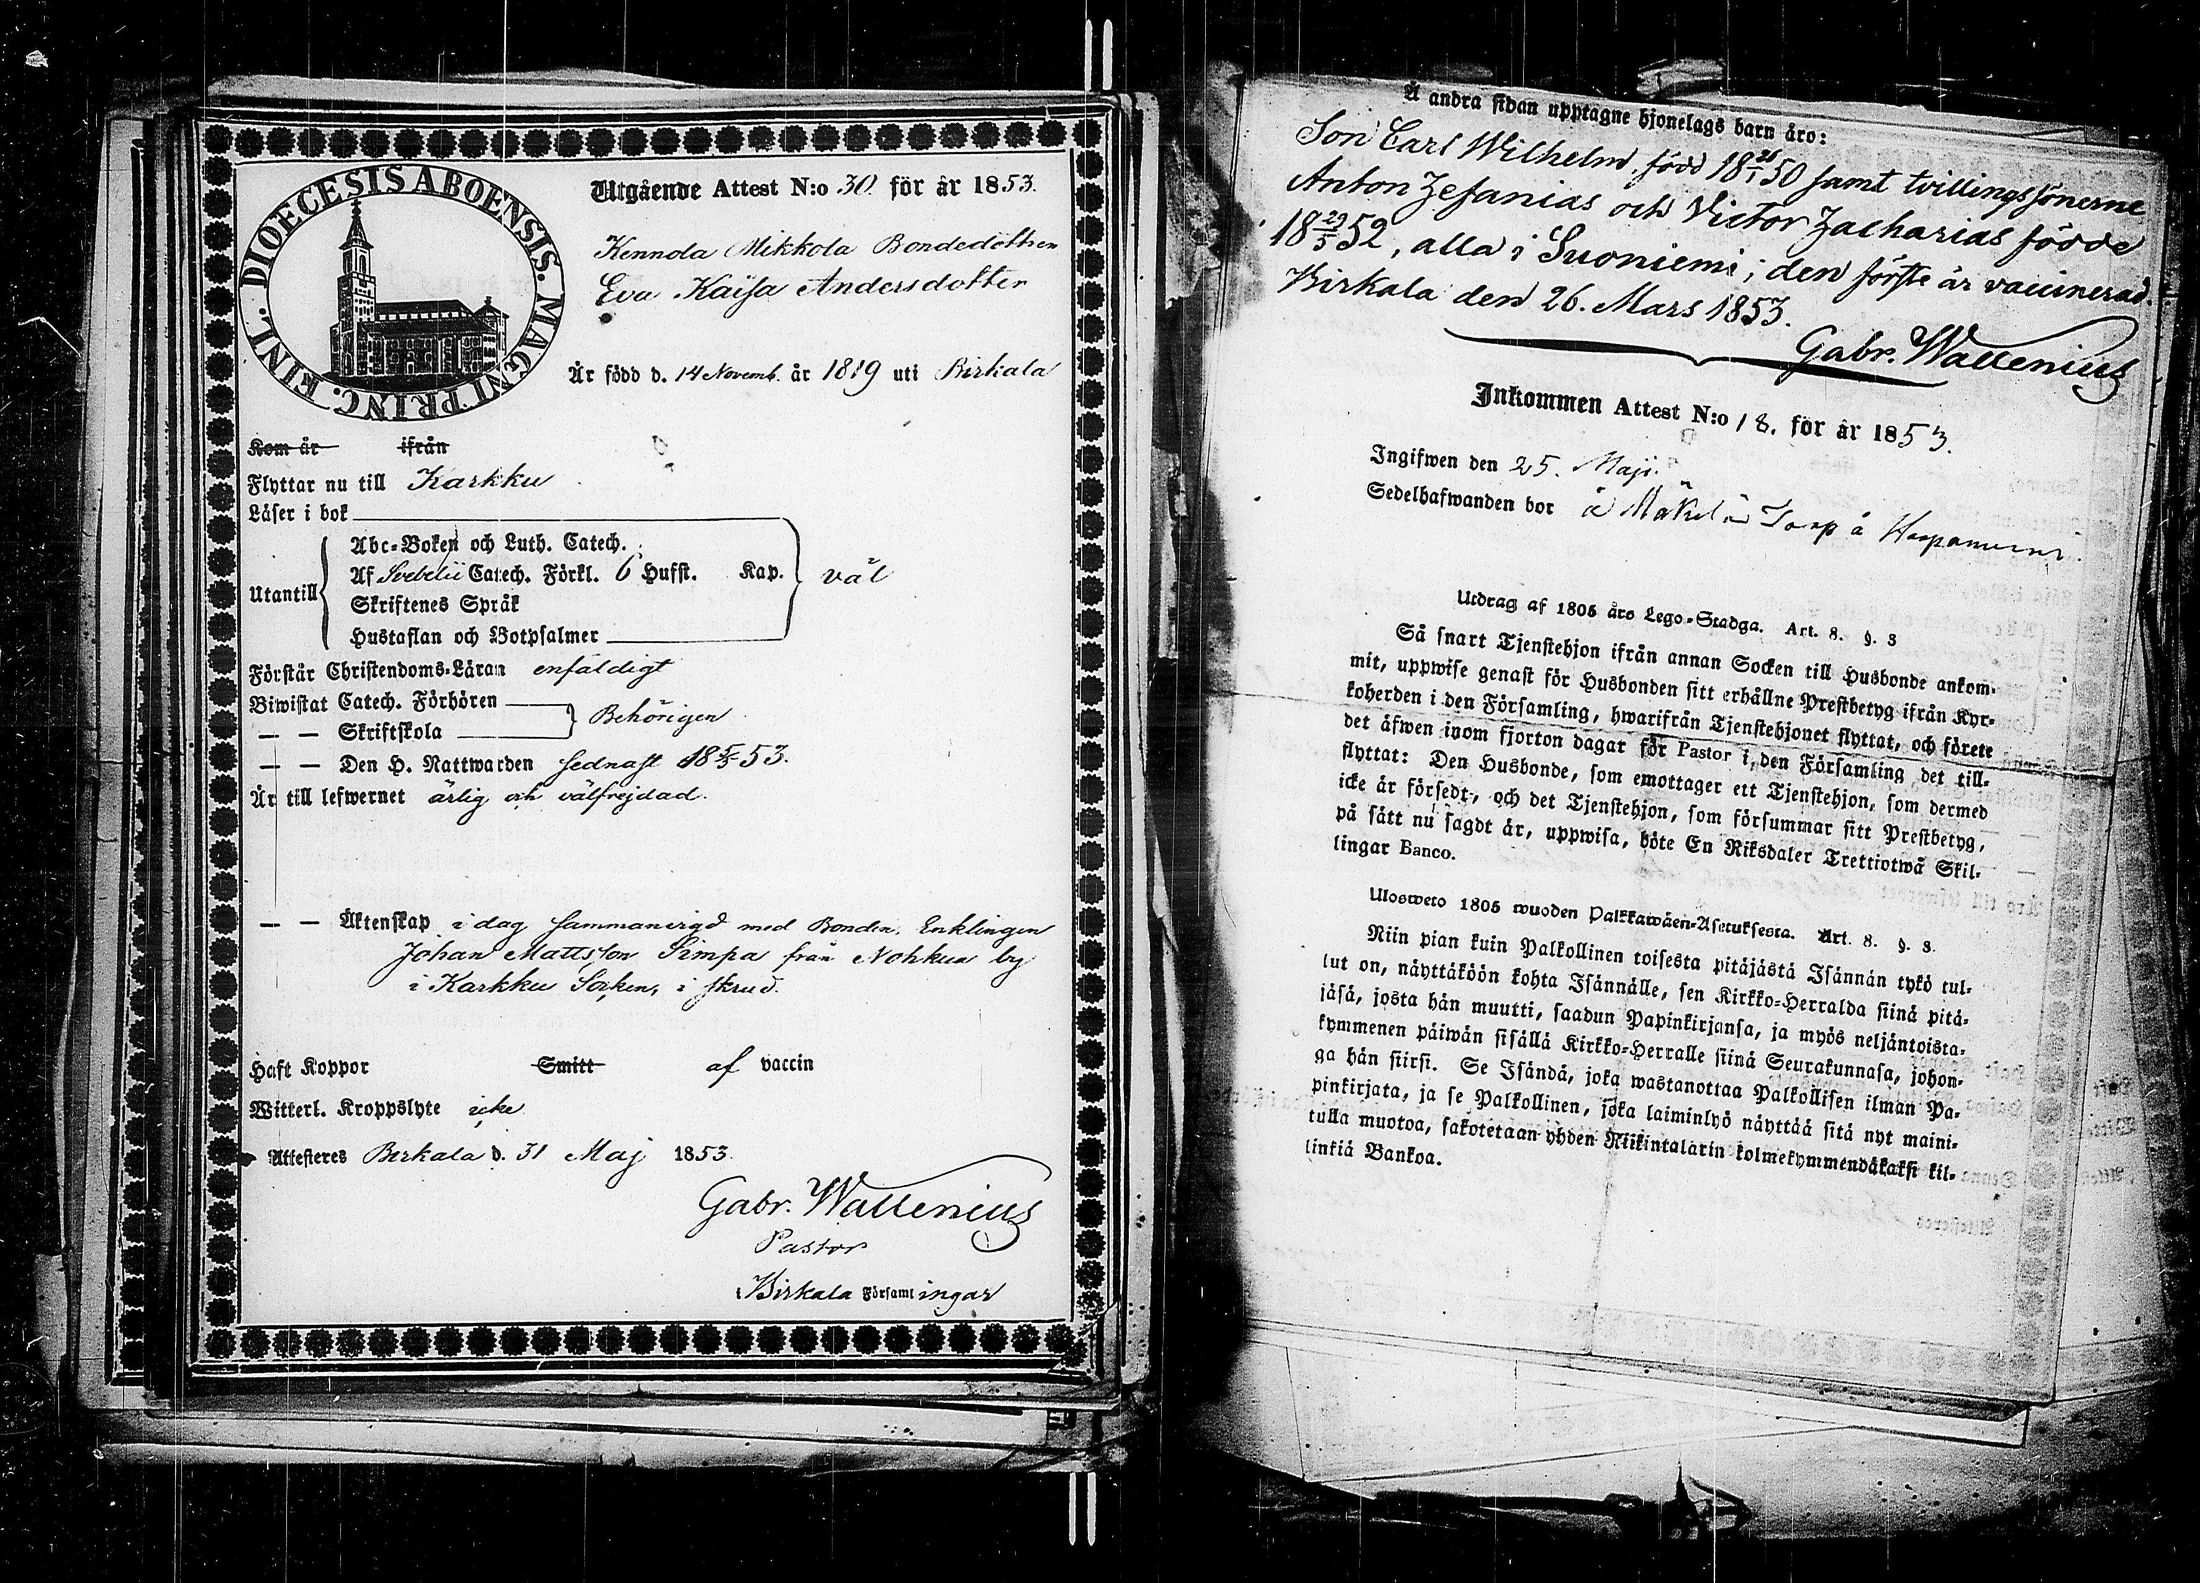 DIOECESIS ABOENSIS. MAGNI PRINC. FINL.
Utgående Attest N:o 30. för år 1853.
Kennola Mikkola Bondedottren
Eva Kaisa Andersdotter
Är född d. 14 Novemb. år 1819 uti Birkala
Kom år ifrån
Flyttar nu till Karkku
Läser i bok
Abc-Boken och Luth. Catech.
Utantill Af Svebelii Catech. Förkl. 6 Hufst. Kap. väl
Skriftenes Språk
Hustaflan och Botpsalmer
Förstår Christendoms-Läran enfaldigt
Biwistat Catech. Förhören
— — Skriftskola Behörigen
— — Den H. Nattwarden sednast 18 5/5 53.
Är till lefwernet ärlig och välfrejdad.
— — Äktenskap i dag sammanvigd med Bonden, Enklingen
Johan Mattsson Simpa från Nohkua by
i Karkku Socken, i skrud.
Haft Koppor Smitt af vaccin
Witterl. Kroppslyte icke
Attesteres Birkala d. 31 Maj 1853
Gabr. Wallenius
Pastor
Birkala Församlingar
Å andra sidan upptagne hjonelags barn äro:
Son Carl Wilhelm, född 18 /1 50 samt tvillingssönerne
Anton Zefanias och Victor Zacharias födde
18 29/5 52, alla i Suoniemi; den förste är vaccinerad.
Birkala den 26. Mars 1853.
Gabr. Wallenius
Inkommen Attest N:o 18. för år 1853.
Ingifwen den 25. Maji.
Sedelhafwanden bor å Mäkelä Torp å Haapaniemi.
Utdrag af 1805 års Lego-Stadga. Art. 8. §. 3
Så snart Tjenstehjon ifrån annan Socken till Husbonde ankom-
mit, uppwise genast för Husbonden sitt erhållne Prestbetyg ifrån Kyr-
koherden i den Församling, hwarifrån Tjenstehjonet flyttat, och förete
det äfwen inom fjorton dagar för Pastor i den Församling det till-
flyttat: Den Husbonde, som emottager ett Tjenstehjon, som dermed
icke är försedt, och det Tjenstehjon, som försummar sitt Prestbetyg,
på sätt nu sagdt är, uppwisa, böte En Riksdaler Trettiotwå Skil-
lingar Banco.
Ulosweto 1805 wuoden Palkkawäen-Asetuksesta. Art. 8. §. 3.
Niin pian kuin Palkollinen toisesta pitäjästä Isännän tykö tul-
lut on, näyttäköön kohta Isännälle, sen Kirkko-Herralda siinä pitä-
jäsä, josta hän muutti, saadun Papinkirjansa, ja myös neljäntoista-
kymmenen päiwän sisällä Kirkko-Herralle siinä Seurakunnasa, johon-
ga hän siirsi. Se Isändä, joka wastanottaa Palkollisen ilman Pa-
pinkirjata, ja se Palkollinen, joka laiminlyö näyttää sitä nyt maini-
tulla muotoa, sakotetaan yhden Riikintalarin kolmekymmendäkaksi kil-
linkiä Bankoa.